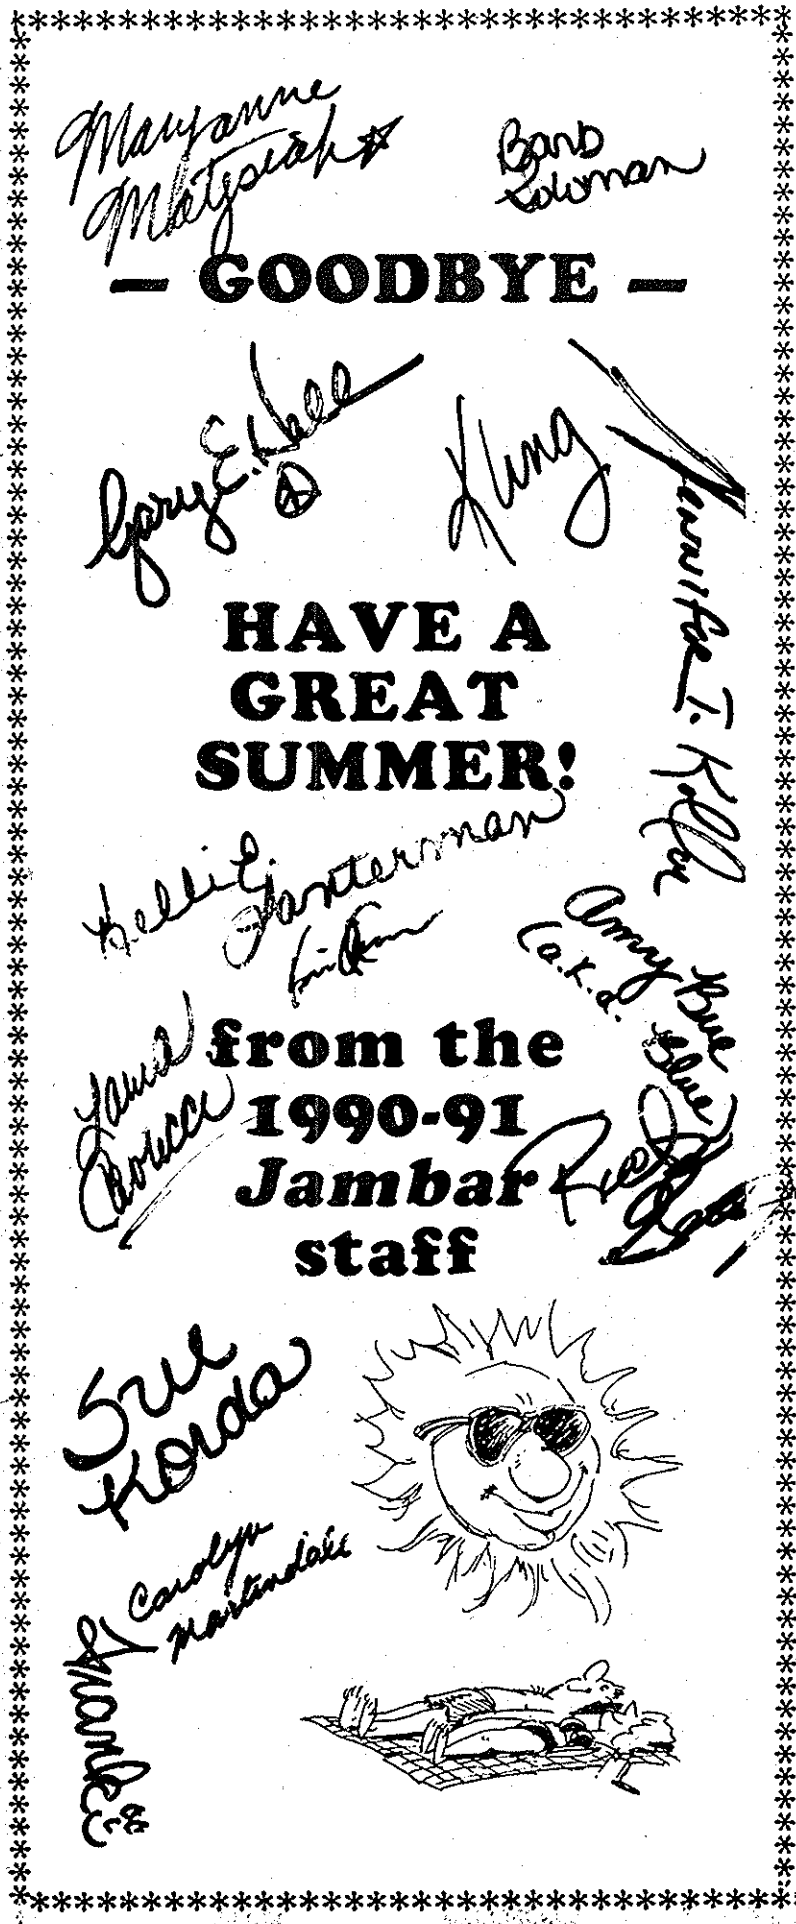 Maryanne
Matysiak
Barb
Solomon
— GOODBYE —
Gary E. Hall
Kling
Jennifer T. Kollar
HAVE A
GREAT
SUMMER!
Kelli E.
Lanterman
Amy Bue
(a.k.a. Blue)
Laura
from the
1990-91
Jambar
staff
Rick
Sue
Korda
Carolyn
Martindale
Frank E.